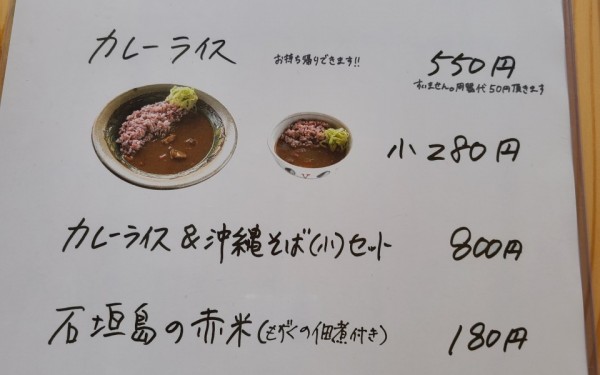 カレーライス お持ち帰りできます!! 550円
すいません。用器代50円頂きます
小 280円
カレーライス&沖縄そば(小)セット 800円
石垣島の赤米(もずくの佃煮付き) 180円